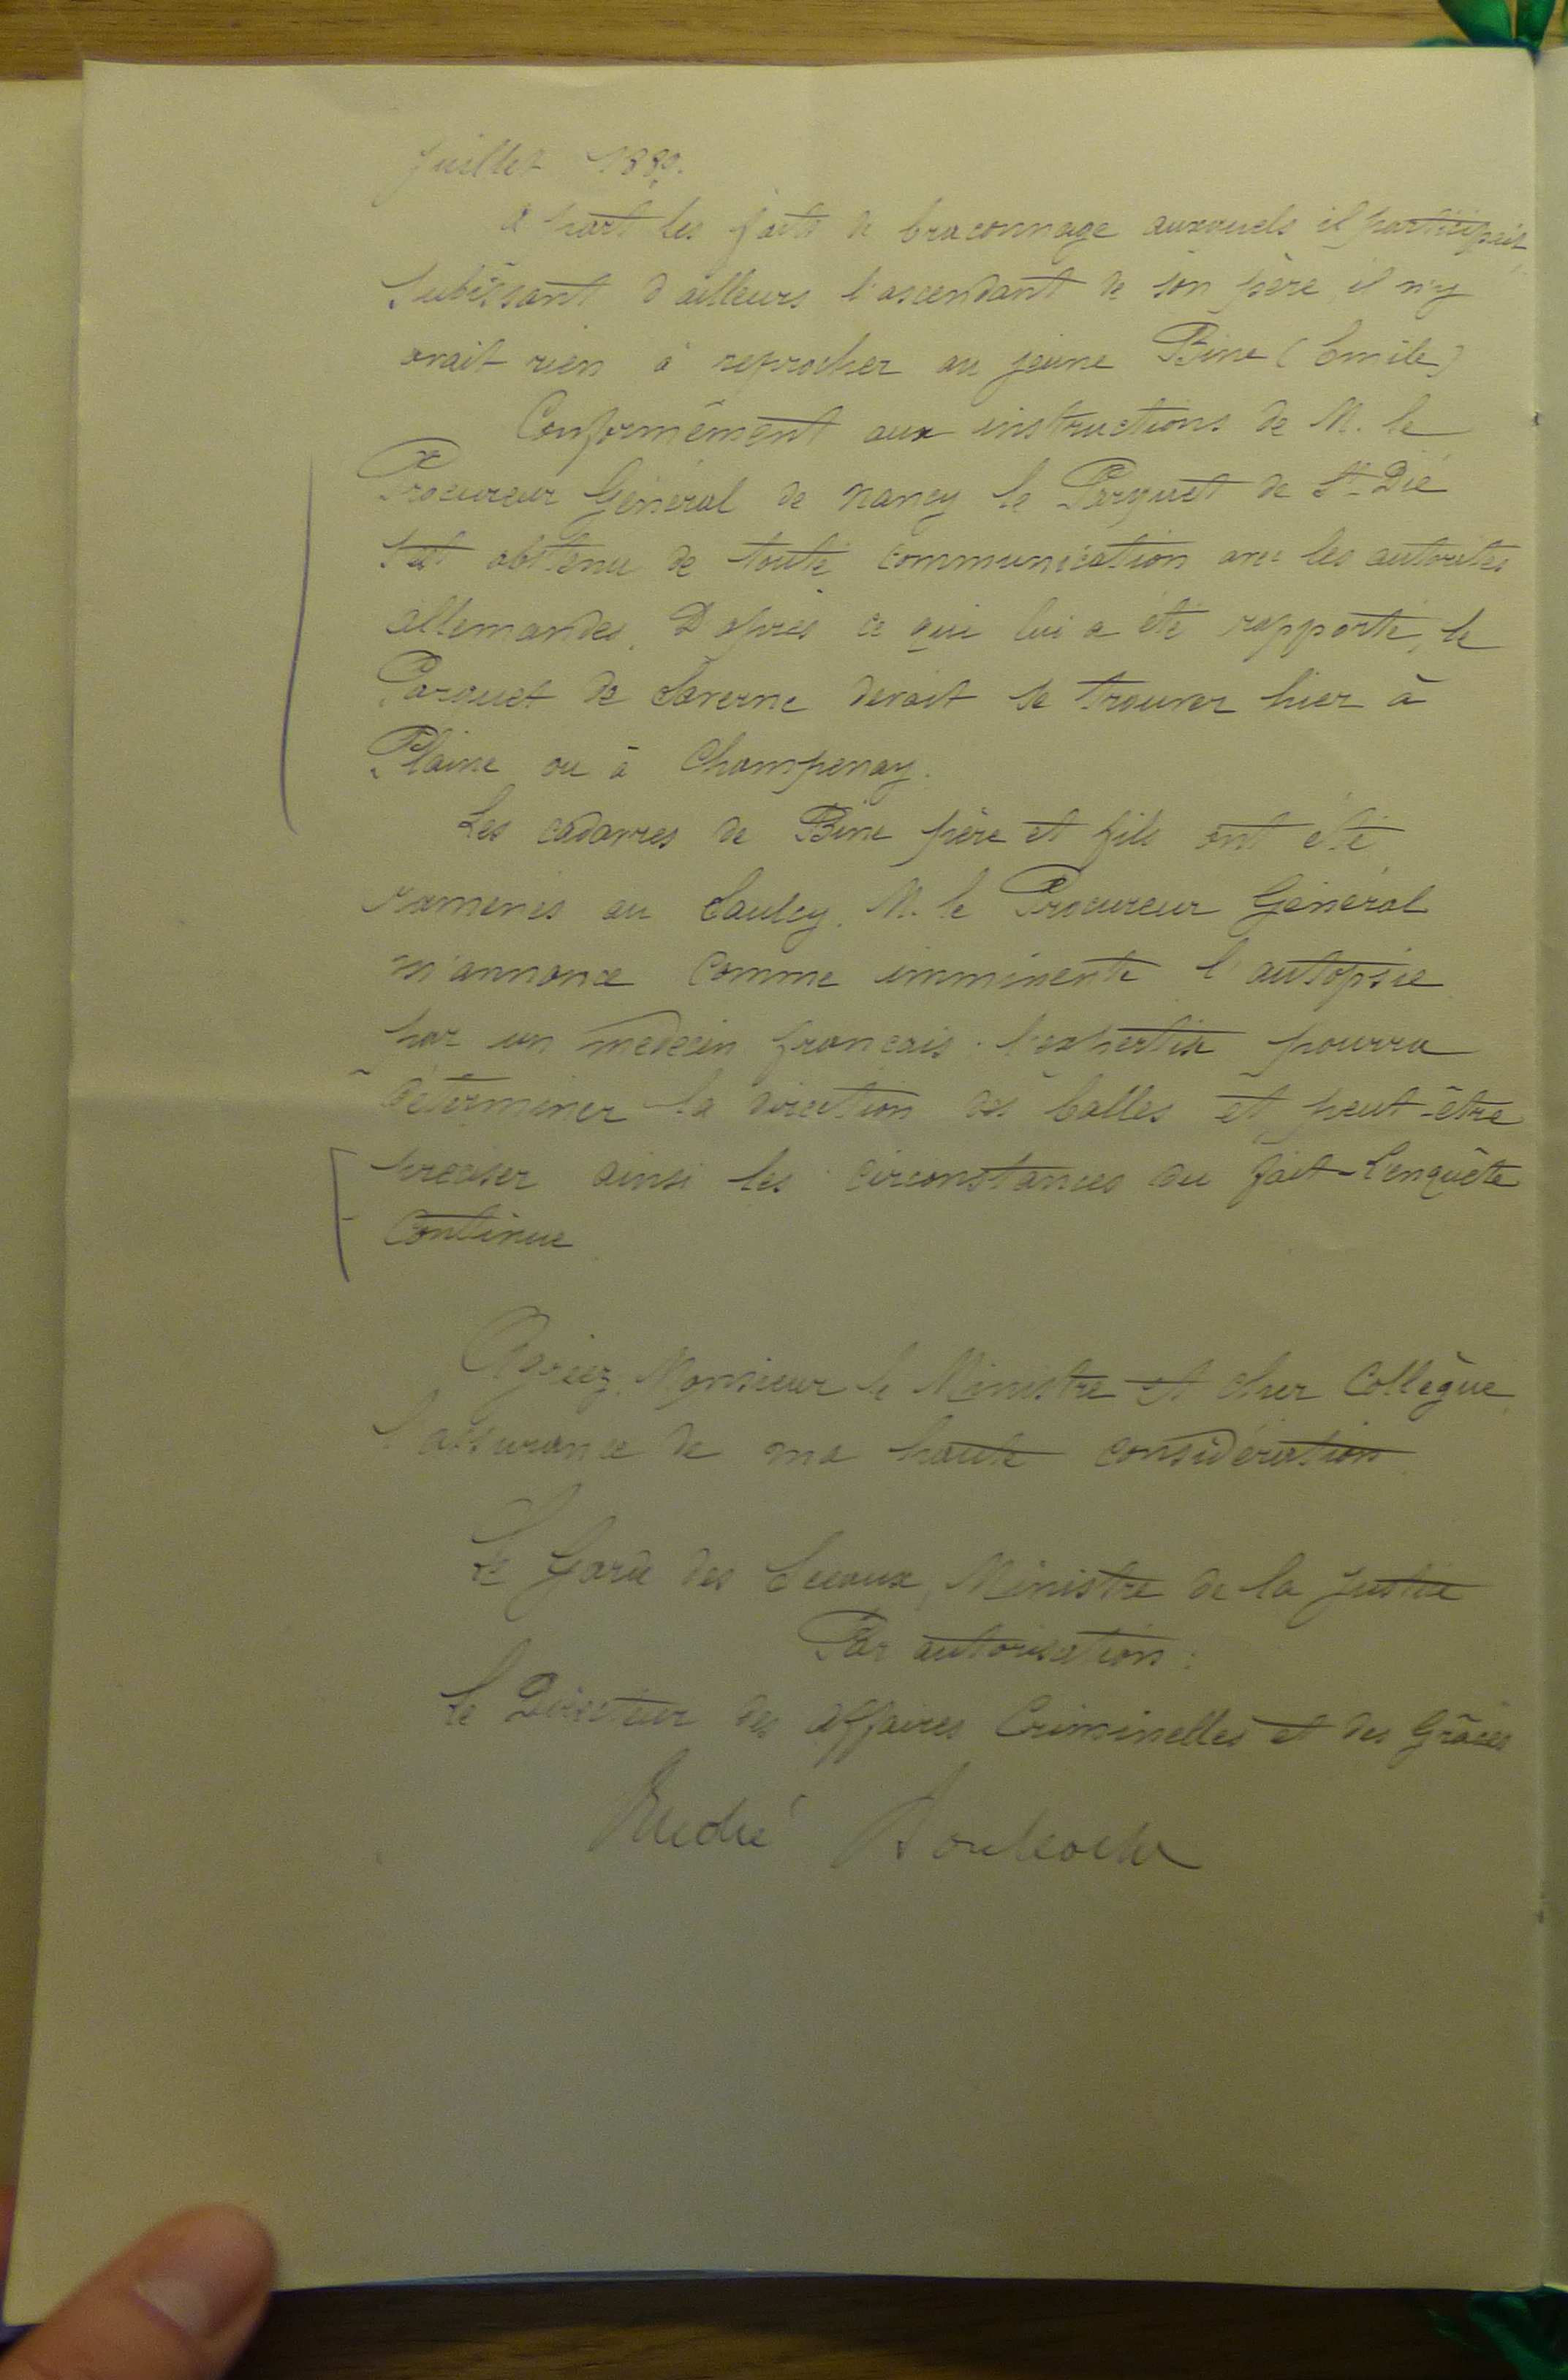 Juillet 1889.
A part les faits de braconnage auxquels il participait
subissant d'ailleurs l'ascendant de son père, il n'y
avait rien à reprocher au jeune Bine (Emile)
Conformément aux instructions de M. le
Procureur Général de Nancy le Parquet de St Dié
s'est abstenu de toute communication avec les autorités
allemandes. D'après ce qui lui a été rapporté, le
Parquet de Saverne devait se trouver hier à
Plaine ou à Champenay.
Les cadavres de Bine père et fils ont été
ramenés au Saulcy. M. le Procureur Général
m'annonce comme imminente l'autopsie
par un médecin français : l'expertise pourra
déterminer la direction des balles et peut-être
préciser ainsi les circonstances du fait - L'enquête
continue
Agréez, Monsieur le Ministre et cher Collègue,
l'assurance de ma haute considération
Le Garde des Sceaux, Ministre de la Justice
Par autorisation :
Le Directeur des Affaires Criminelles et des Grâces
André Boulloche